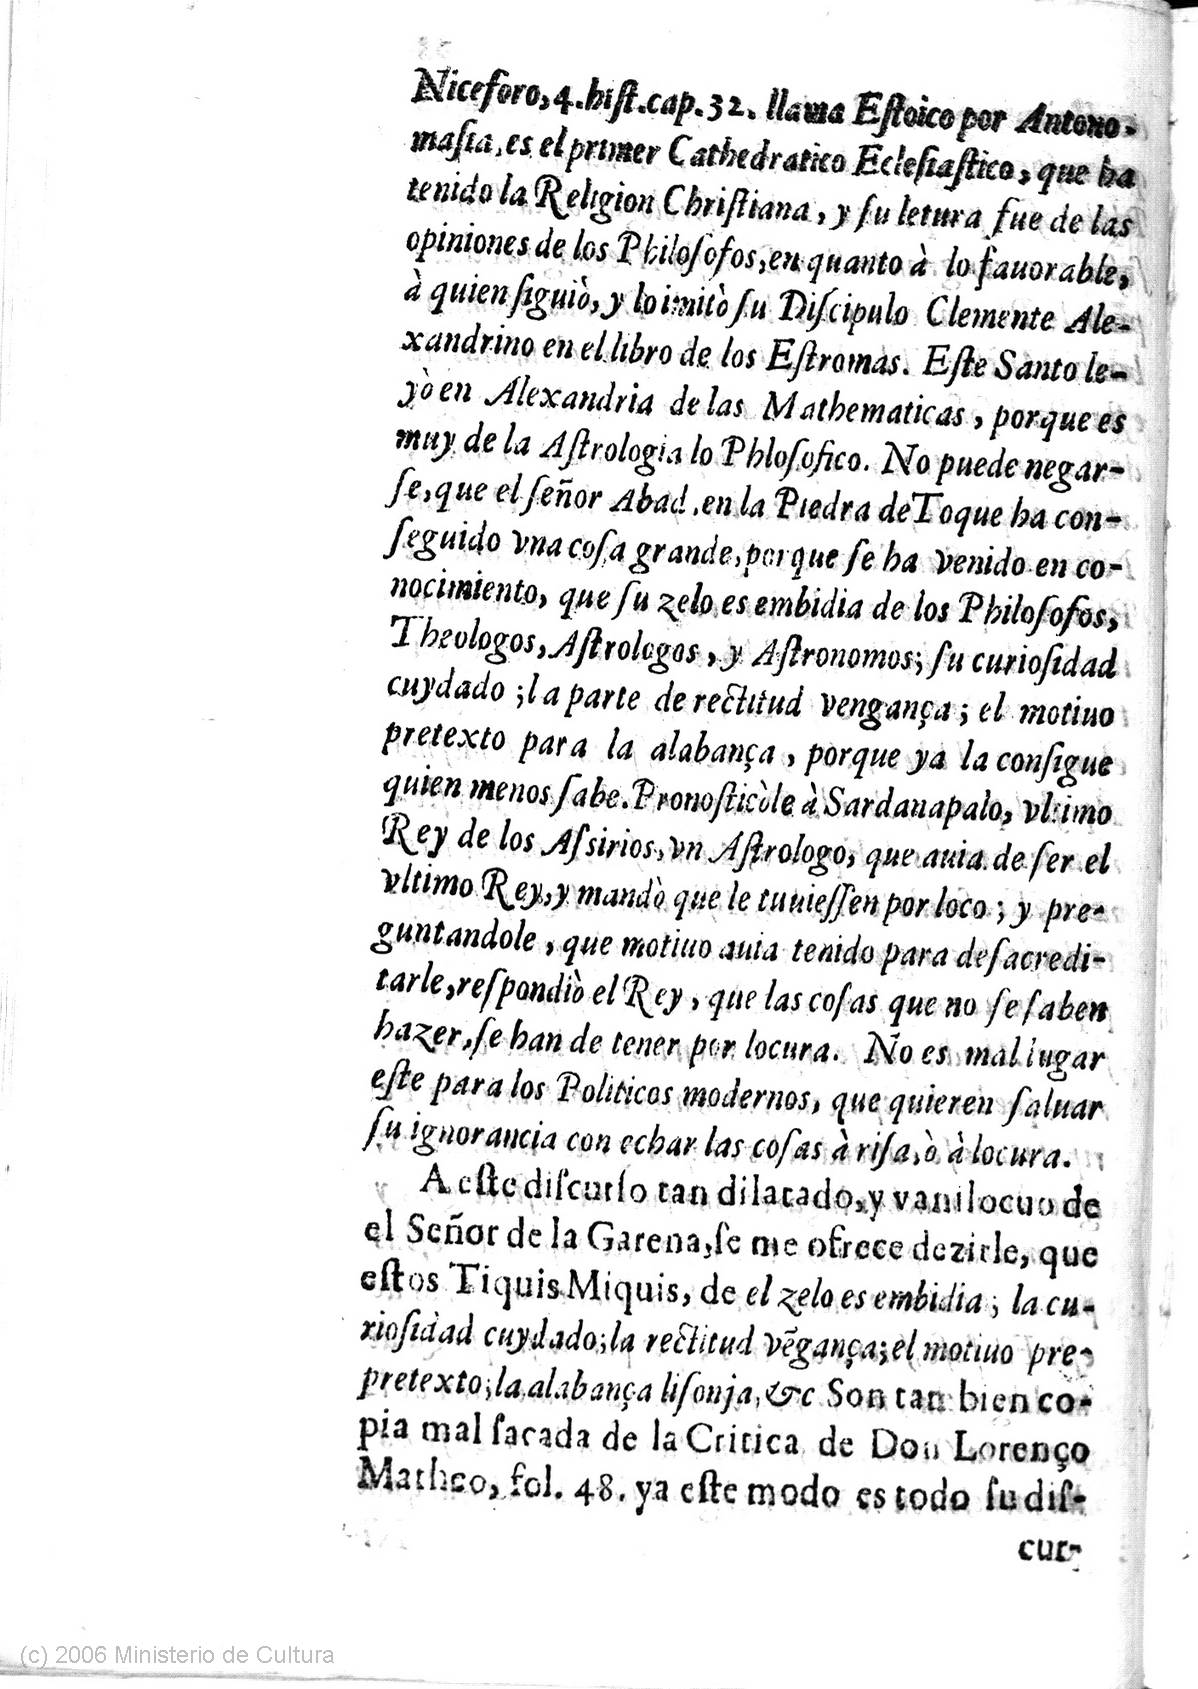 Niceforo, 4. hiſt. cap. 32. llama Eſtoico por Antono-
maſia, es el primer Cathedratico Ecleſiaſtico, que ha
tenido la Religion Chriſtiana, y ſu letura fue de las
opiniones de los Philoſofos, en quanto à lo fauorable,
à quien ſiguiò, y lo imitò ſu Diſcipulo Clemente Ale-
xandrino en el libro de los Eſtromas. Eſte Santo le-
yò en Alexandria de las Mathematicas, porque es
muy de la Aſtrologia lo Phloſofico. No puede negar-
ſe, que el ſeñor Abad, en la Piedra de Toque ha con-
ſeguido vna coſa grande, porque ſe ha venido en co-
nocimiento, que ſu zelo es embidia de los Philoſofos,
Theologos, Aſtrologos, y Aſtronomos; ſu curioſidad
cuydado; la parte de rectitud vengança; el motiuo
pretexto para la alabança, porque ya la conſigue
quien menos ſabe. Pronoſticòle à Sardanapalo, vltimo
Rey de los Aſsirios, vn Aſtrologo, que auia de ſer el
vltimo Rey, y mandò que le tuuieſſen por loco; y pre-
guntandole, que motiuo auia tenido para deſacredi-
tarle, reſpondiò el Rey, que las coſas que no ſe ſaben
hazer, ſe han de tener por locura. No es mal lugar
eſte para los Politicos modernos, que quieren ſaluar
ſu ignorancia con echar las coſas à riſa, ò à locura.
A eſte diſcurſo tan dilatado, y vanilocuo de
el Señor de la Garena, ſe me ofrece dezirle, que
eſtos Tiquis Miquis, de el zelo es embidia; la cu-
rioſidad cuydado; la rectitud vẽgança; el motiuo pre-
pretexto; la alabança liſonja, &c Son tan bien co-
pia mal ſacada de la Critica de Don Lorenço
Matheo, fol. 48. ya eſte modo es todo ſu diſ-
cur-
(c) 2006 Ministerio de Cultura